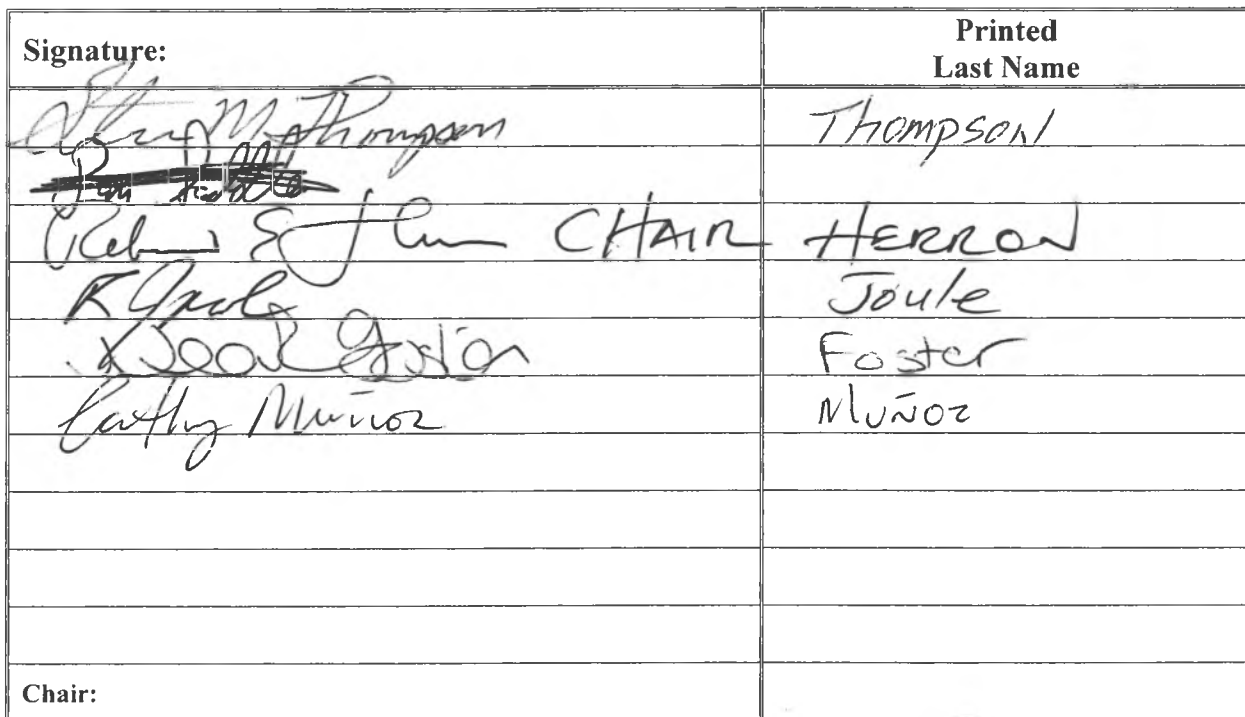 Signature: Printed
Last Name
Steve M. Thompson Thompson
CHAIR HERRON
Joule
Foster Foster
Cathy Muñoz Muñoz
Chair: